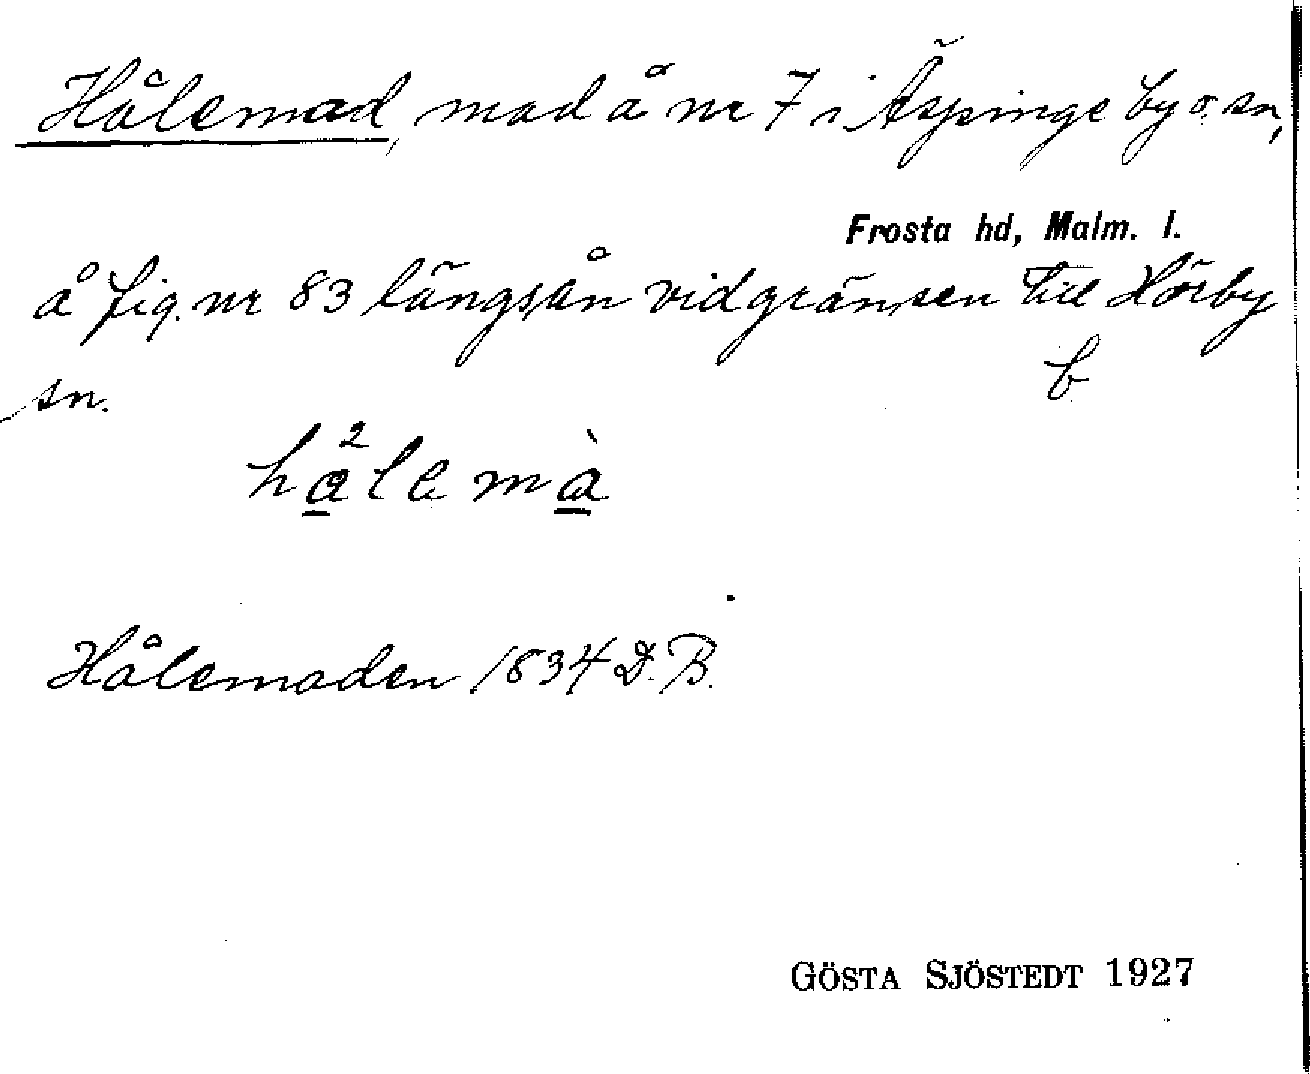 Hålemad, mad å nr 7 i Äspinge by o. sn,
Frosta hd, Malm. l.
å fig. nr 83 längs ån vid gränsen till Hörby
sn. b
hå²lemà
Hålemaden 1834 D.B.
GÖSTA SJÖSTEDT 1927